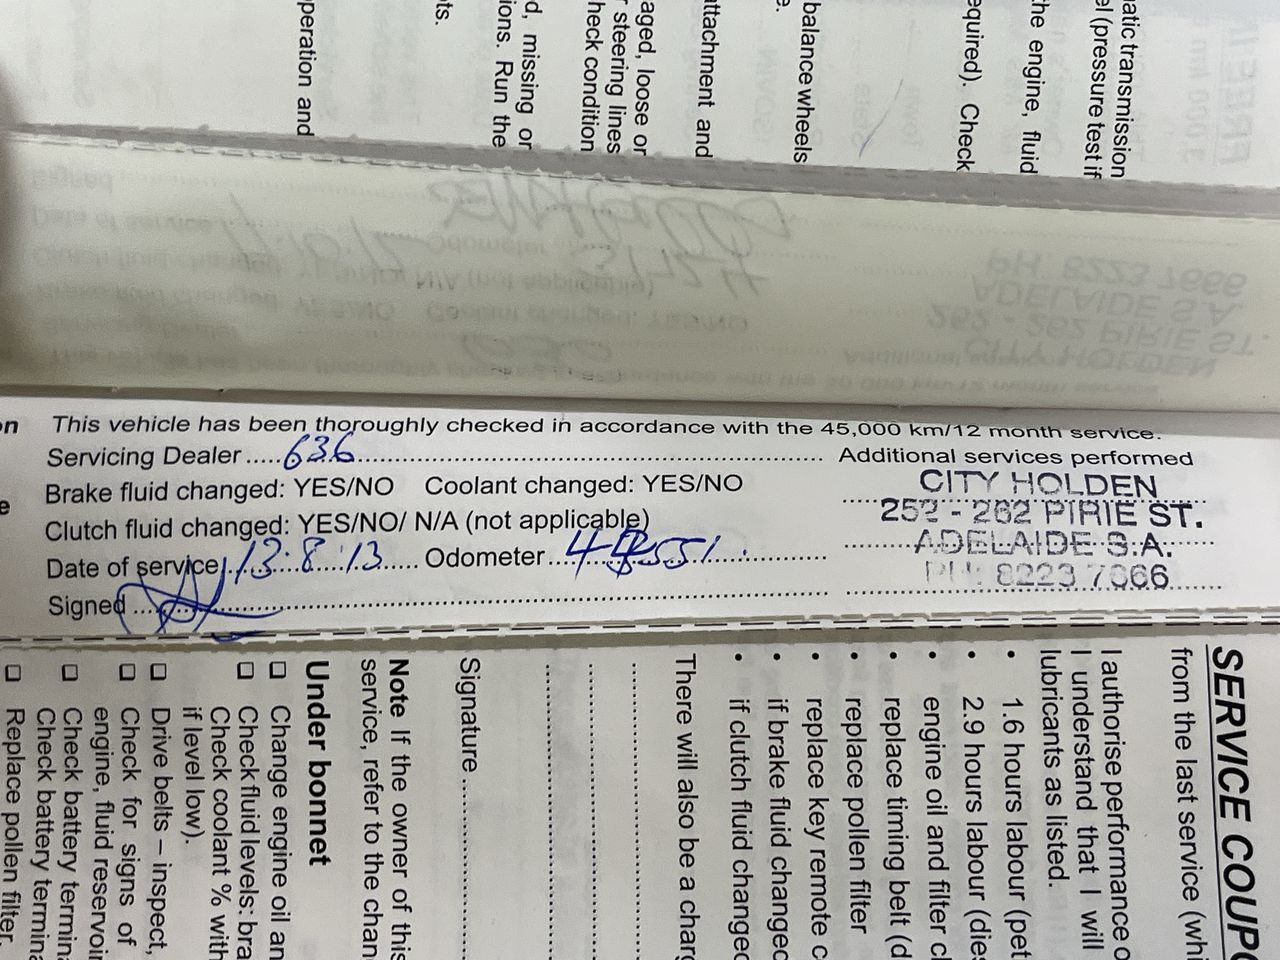 peration and
ts.
d, missing or
ions. Run the
aged, loose or
r steering lines
heck condition
attachment and
balance wheels
e.
equired). Check
the engine, fluid
atic transmission
el (pressure test if
on
e
This vehicle has been thoroughly checked in accordance with the 45,000 km/12 month service.
Servicing Dealer ..... 636 ..... Additional services performed
Brake fluid changed: YES/NO Coolant changed: YES/NO
Clutch fluid changed: YES/NO/ N/A (not applicable)
Date of service 13.8.13 ..... Odometer
Signed
CITY HOLDEN
262 PIRIE ST.
ADELAIDE S.A.
SERVICE COUP
from the last service (whi
I authorise performance o
I understand that I will
lubricants as listed.
• 1.6 hours labour (pet
• 2.9 hours labour (dies
• engine oil and filter c
• replace timing belt (d
• replace pollen filter
• replace key remote c
• if brake fluid changed
• if clutch fluid changed
There will also be a charg
Signature
Note If the owner of this
service, refer to the chan
Under bonnet
❑ Change engine oil an
❑ Check fluid levels: bra
Check coolant % with
if level low).
❑ Drive belts – inspect,
❑ Check for signs of
engine, fluid reservoi
❑ Check battery termina
Check battery termina
❑ Replace pollen filter.